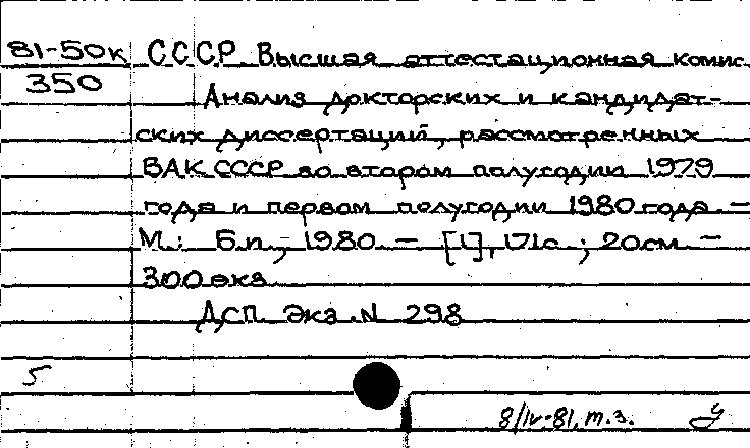 81-50к СССР. Высшая аттестационная комис.
350 Анализ докторских и кандидат-
ских диссертаций, рассмотренных
ВАК СССР во втором полугодии 1979
года и первом полугодии 1980 года. –
М.: Б.и., 1980. – [1], 171с. ; 20см. –
300 экз.
ДСП. Экз. N 298
5
8/IV-81, т.з.